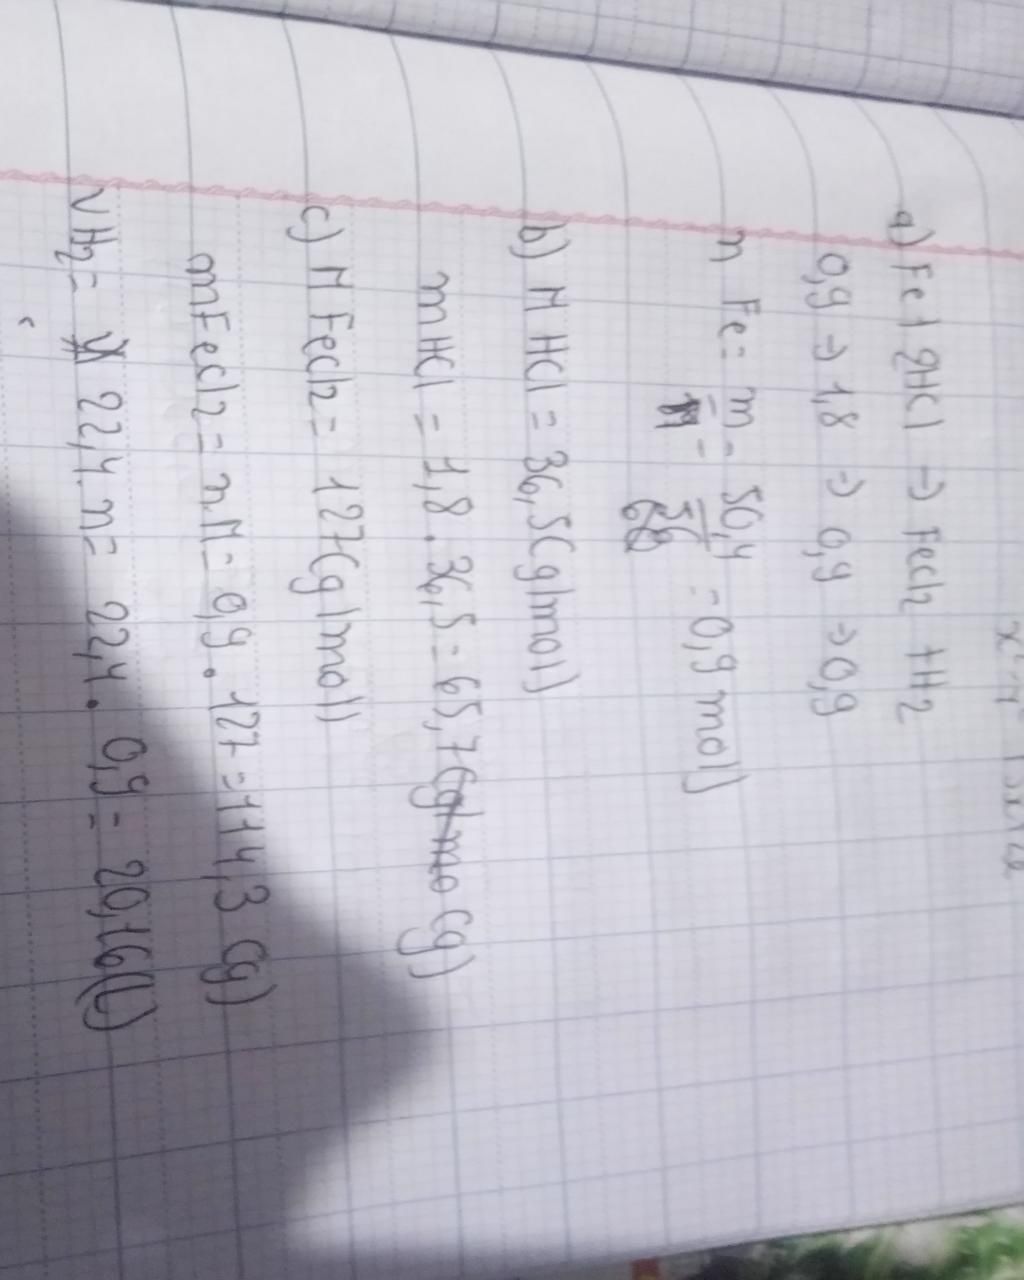 a) Fe + 2HCl → FeCl2 + H2
0,9 → 1,8 → 0,9 → 0,9
n Fe = m/M = 50,4/56 = 0,9 mol)
b) M HCl = 36,5 (g/mol)
mHCl = 1,8 . 36,5 = 65,7 (g)
c) M FeCl2 = 127 (g/mol)
mFeCl2 = n.M = 0,9 . 127 = 114,3 (g)
VH2 = 22,4.n = 22,4 . 0,9 = 20,16 (L)